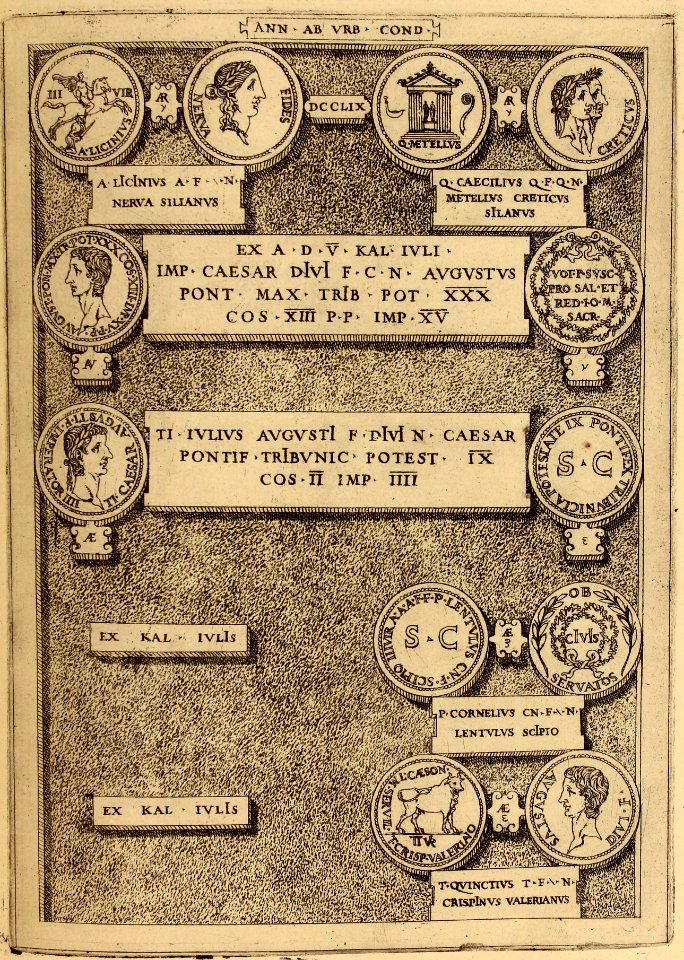 ANN · AB VRB · COND ·
III VIR
A · LICINIVS
AR
NERVA FIDES
DCCLIX
Q · METELLVS
AR
CRETICVS
A · LICINIVS A · F · A · N ·
NERVA SILIANVS
Q · CAECILIVS Q · F · Q · N ·
METELIVS CRETICVS
SILANVS
EX A · D · V · KAL · IVLI ·
IMP · CAESAR DIVI F · C · N · AVGVSTVS
PONT · MAX · TRIB · POT · XXX
COS · XIII P · P · IMP · XV
VOT · P · SVSC
PRO SAL · ET
RED · I · O · M ·
SACR ·
AV
TI · IVLIVS AVGVSTI F · DIVI N · CAESAR
PONTIF · TRIBVNIC · POTEST · IX
COS · II IMP · IIII
TI · CAESAR AVGVSTI · F · IMPERATOR IIII
PONTIFEX TRIBVNICIA POTESTATE IX
S · C
Æ
EX KAL · IVLIS
IIIVIR · A · A · A · F · F · P · LENTVLVS CN · F · SCIPIO
S · C
Æ
OB
CIVIS
SERVATOS
P · CORNELIVS CN · F · A · N ·
LENTVLVS SCIPIO
EX KAL · IVLIS
T · CRISP · VALERINO
Æ
AVGVSTVS DIVI · F ·
T · QVINCTIVS T · F · A · N ·
CRISPINVS VALERIANVS